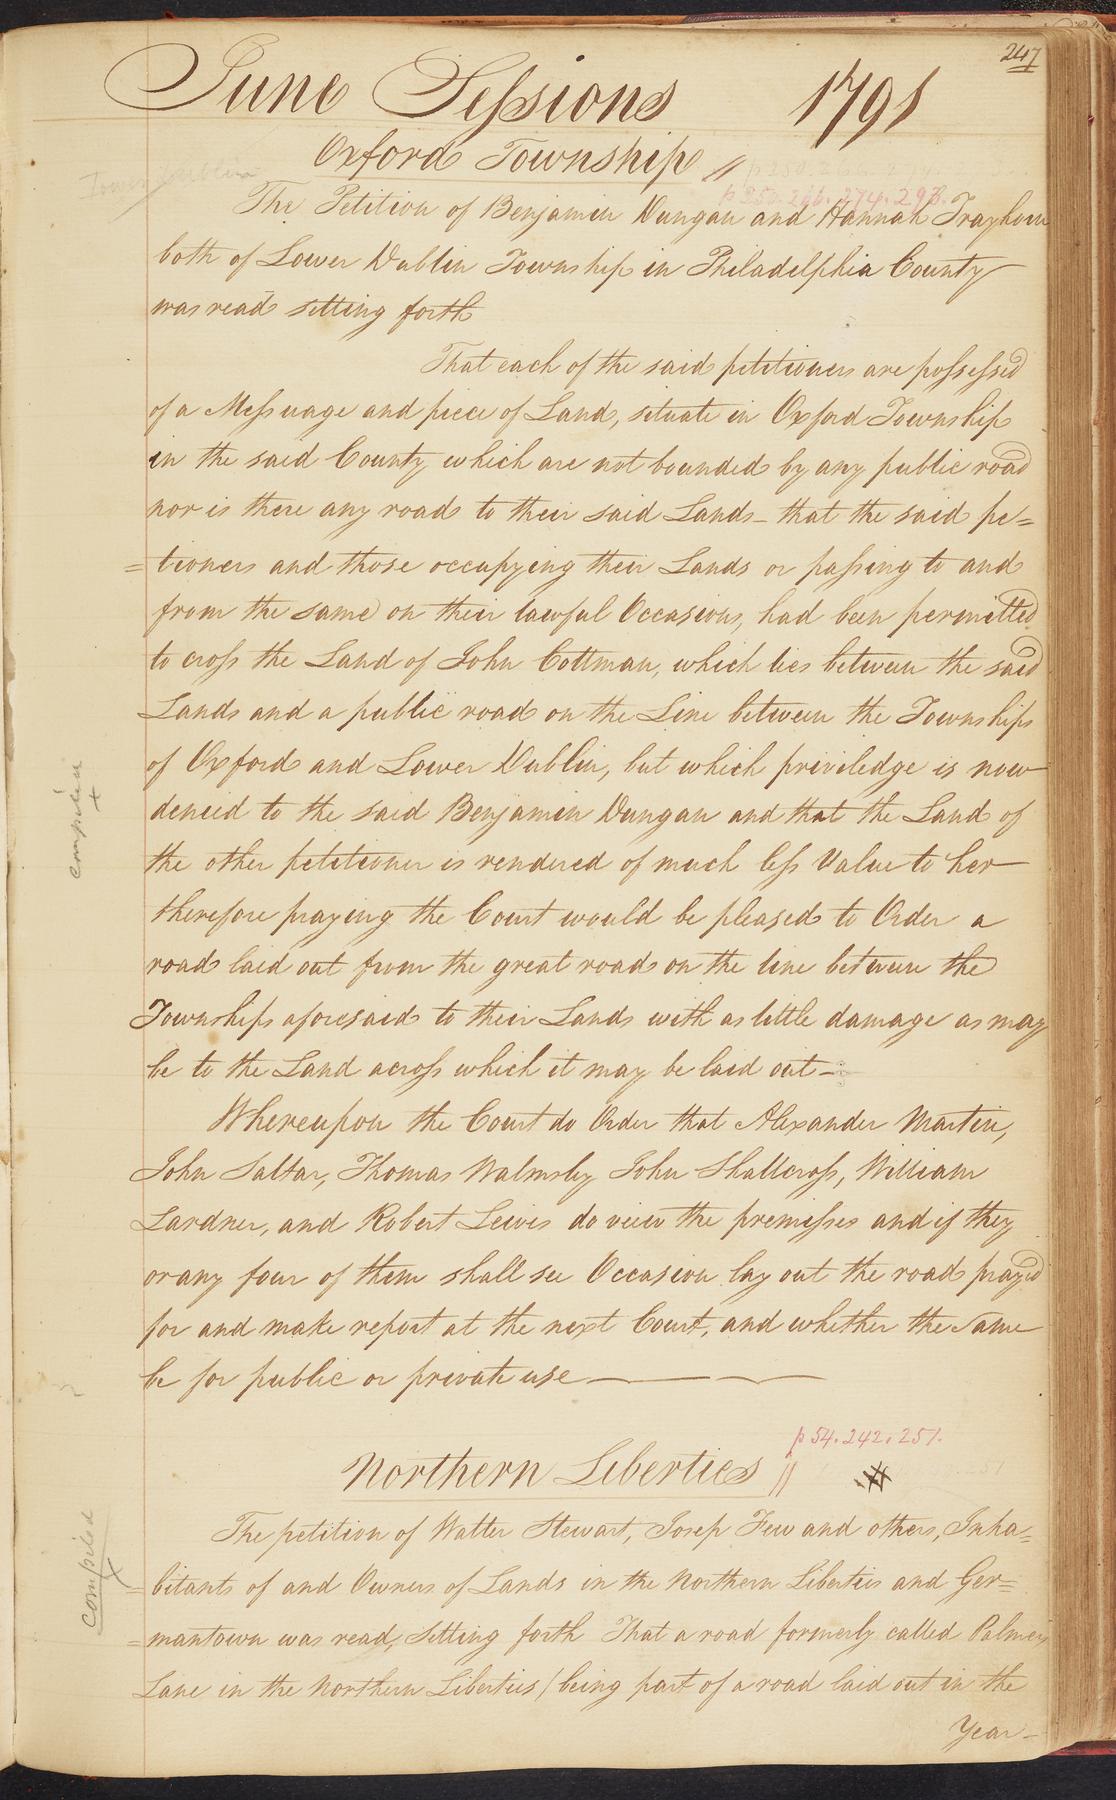 247
June Sessions 1791
Oxford Township //
Lower Dublin
p 250. 266. 274. 298.
The Petition of Benjamin Dungan and Hannah Trayhorn
both of Lower Dublin Township in Philadelphia County
was read setting forth
That each of the said petitioners are possessed
of a Messuage and piece of Land, situate in Oxford Township
in the said County which are not bounded by any public road
nor is there any road to their said Lands – that the said pe=
=tioners and those occupying their Lands or passing to and
from the same on their lawful Occasions, had been permitted
to cross the Land of John Cottman, which lies between the said
Lands and a public road on the Line between the Townships
of Oxford and Lower Dublin, but which priviledge is now
denied to the said Benjamin Dungan and that the Land of
the other petitioner is rendered of much less Value to her
therefore praying the Court would be pleased to Order a
road laid out from the great road on the line between the
Townships aforesaid to their Lands with as little damage as may
be to the Land across which it may be laid out –
Whereupon the Court do Order that Alexander Martin,
John Saltar, Thomas Walmsly John Shallcross, William
Lardner, and Robert Lewis do view the premisses and if they
or any four of them shall see Occasion lay out the road prayed
for and make report at the next Court, and whether the Same
be for public or private use
compiled x
p 54. 242. 251.
Northern Liberties //
The petition of Walter Stewart, Josep Few and others, Inha=
=bitants of and Owners of Lands in the Northern Liberties and Ger=
=mantown was read, Setting forth That a road formerly called Palmers
Lane in the Northern Liberties / being part of a road laid out in the
Year –
compiled x